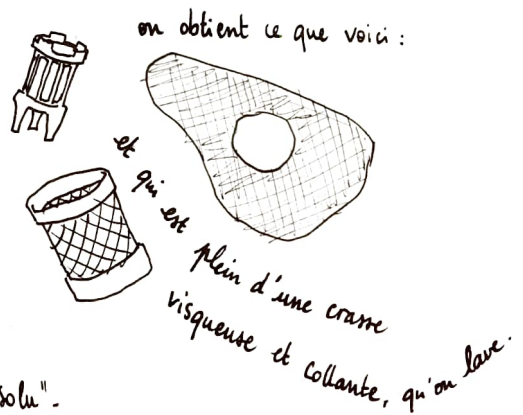 on obtient ce que voici :
et qui est plein d'une crasse
visqueuse et collante, qu'on lave.
solu".